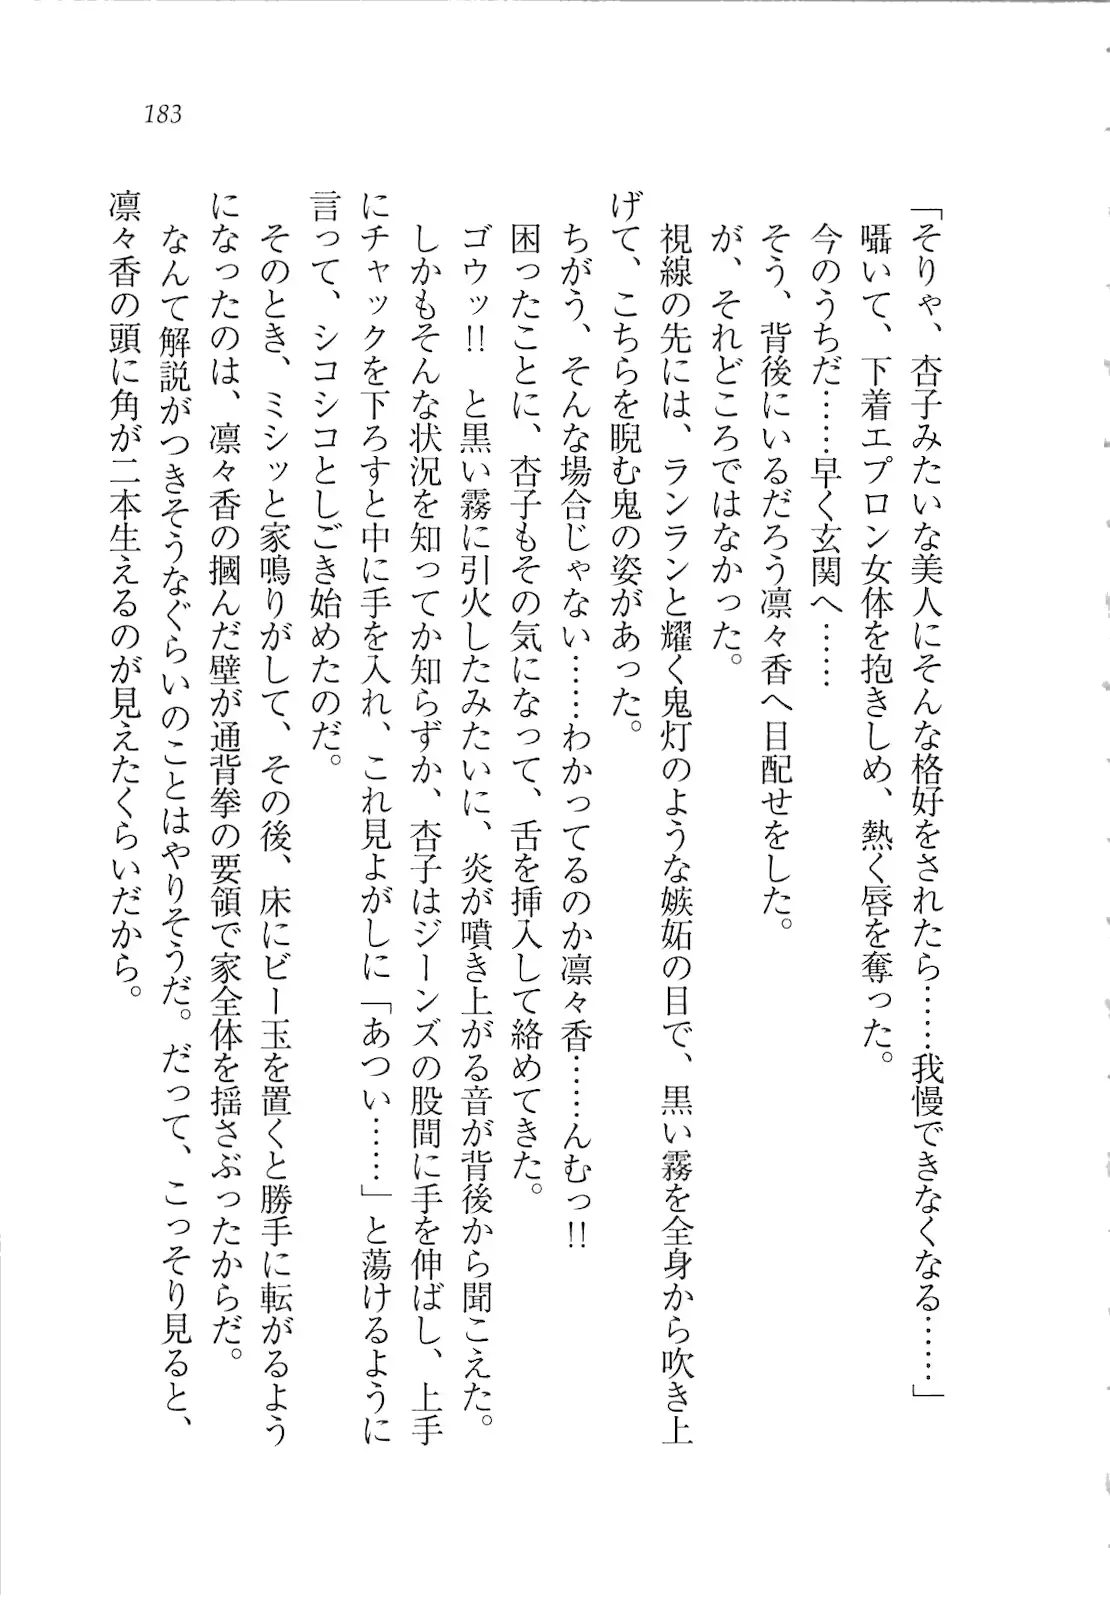 183
「そりゃ、杏子みたいな美人にそんな格好をされたら……我慢できなくなる……」
囁いて、下着エプロン女体を抱きしめ、熱く唇を奪った。
今のうちだ……早く玄関へ……
そう、背後にいるだろう凛々香へ目配せをした。
が、それどころではなかった。
視線の先には、ランランと耀く鬼灯のような嫉妬の目で、黒い霧を全身から吹き上
げて、こちらを睨む鬼の姿があった。
ちがう、そんな場合じゃない……わかってるのか凛々香……んむっ!!
困ったことに、杏子もその気になって、舌を挿入して絡めてきた。
ゴウッ!!　と黒い霧に引火したみたいに、炎が噴き上がる音が背後から聞こえた。
しかもそんな状況を知ってか知らずか、杏子はジーンズの股間に手を伸ばし、上手
にチャックを下ろすと中に手を入れ、これ見よがしに「あつい……」と蕩けるように
言って、シコシコとしごき始めたのだ。
そのとき、ミシッと家鳴りがして、その後、床にビー玉を置くと勝手に転がるよう
になったのは、凛々香の摑んだ壁が通背拳の要領で家全体を揺さぶったからだ。
なんて解説がつきそうなぐらいのことはやりそうだ。だって、こっそり見ると、
凛々香の頭に角が二本生えるのが見えたくらいだから。